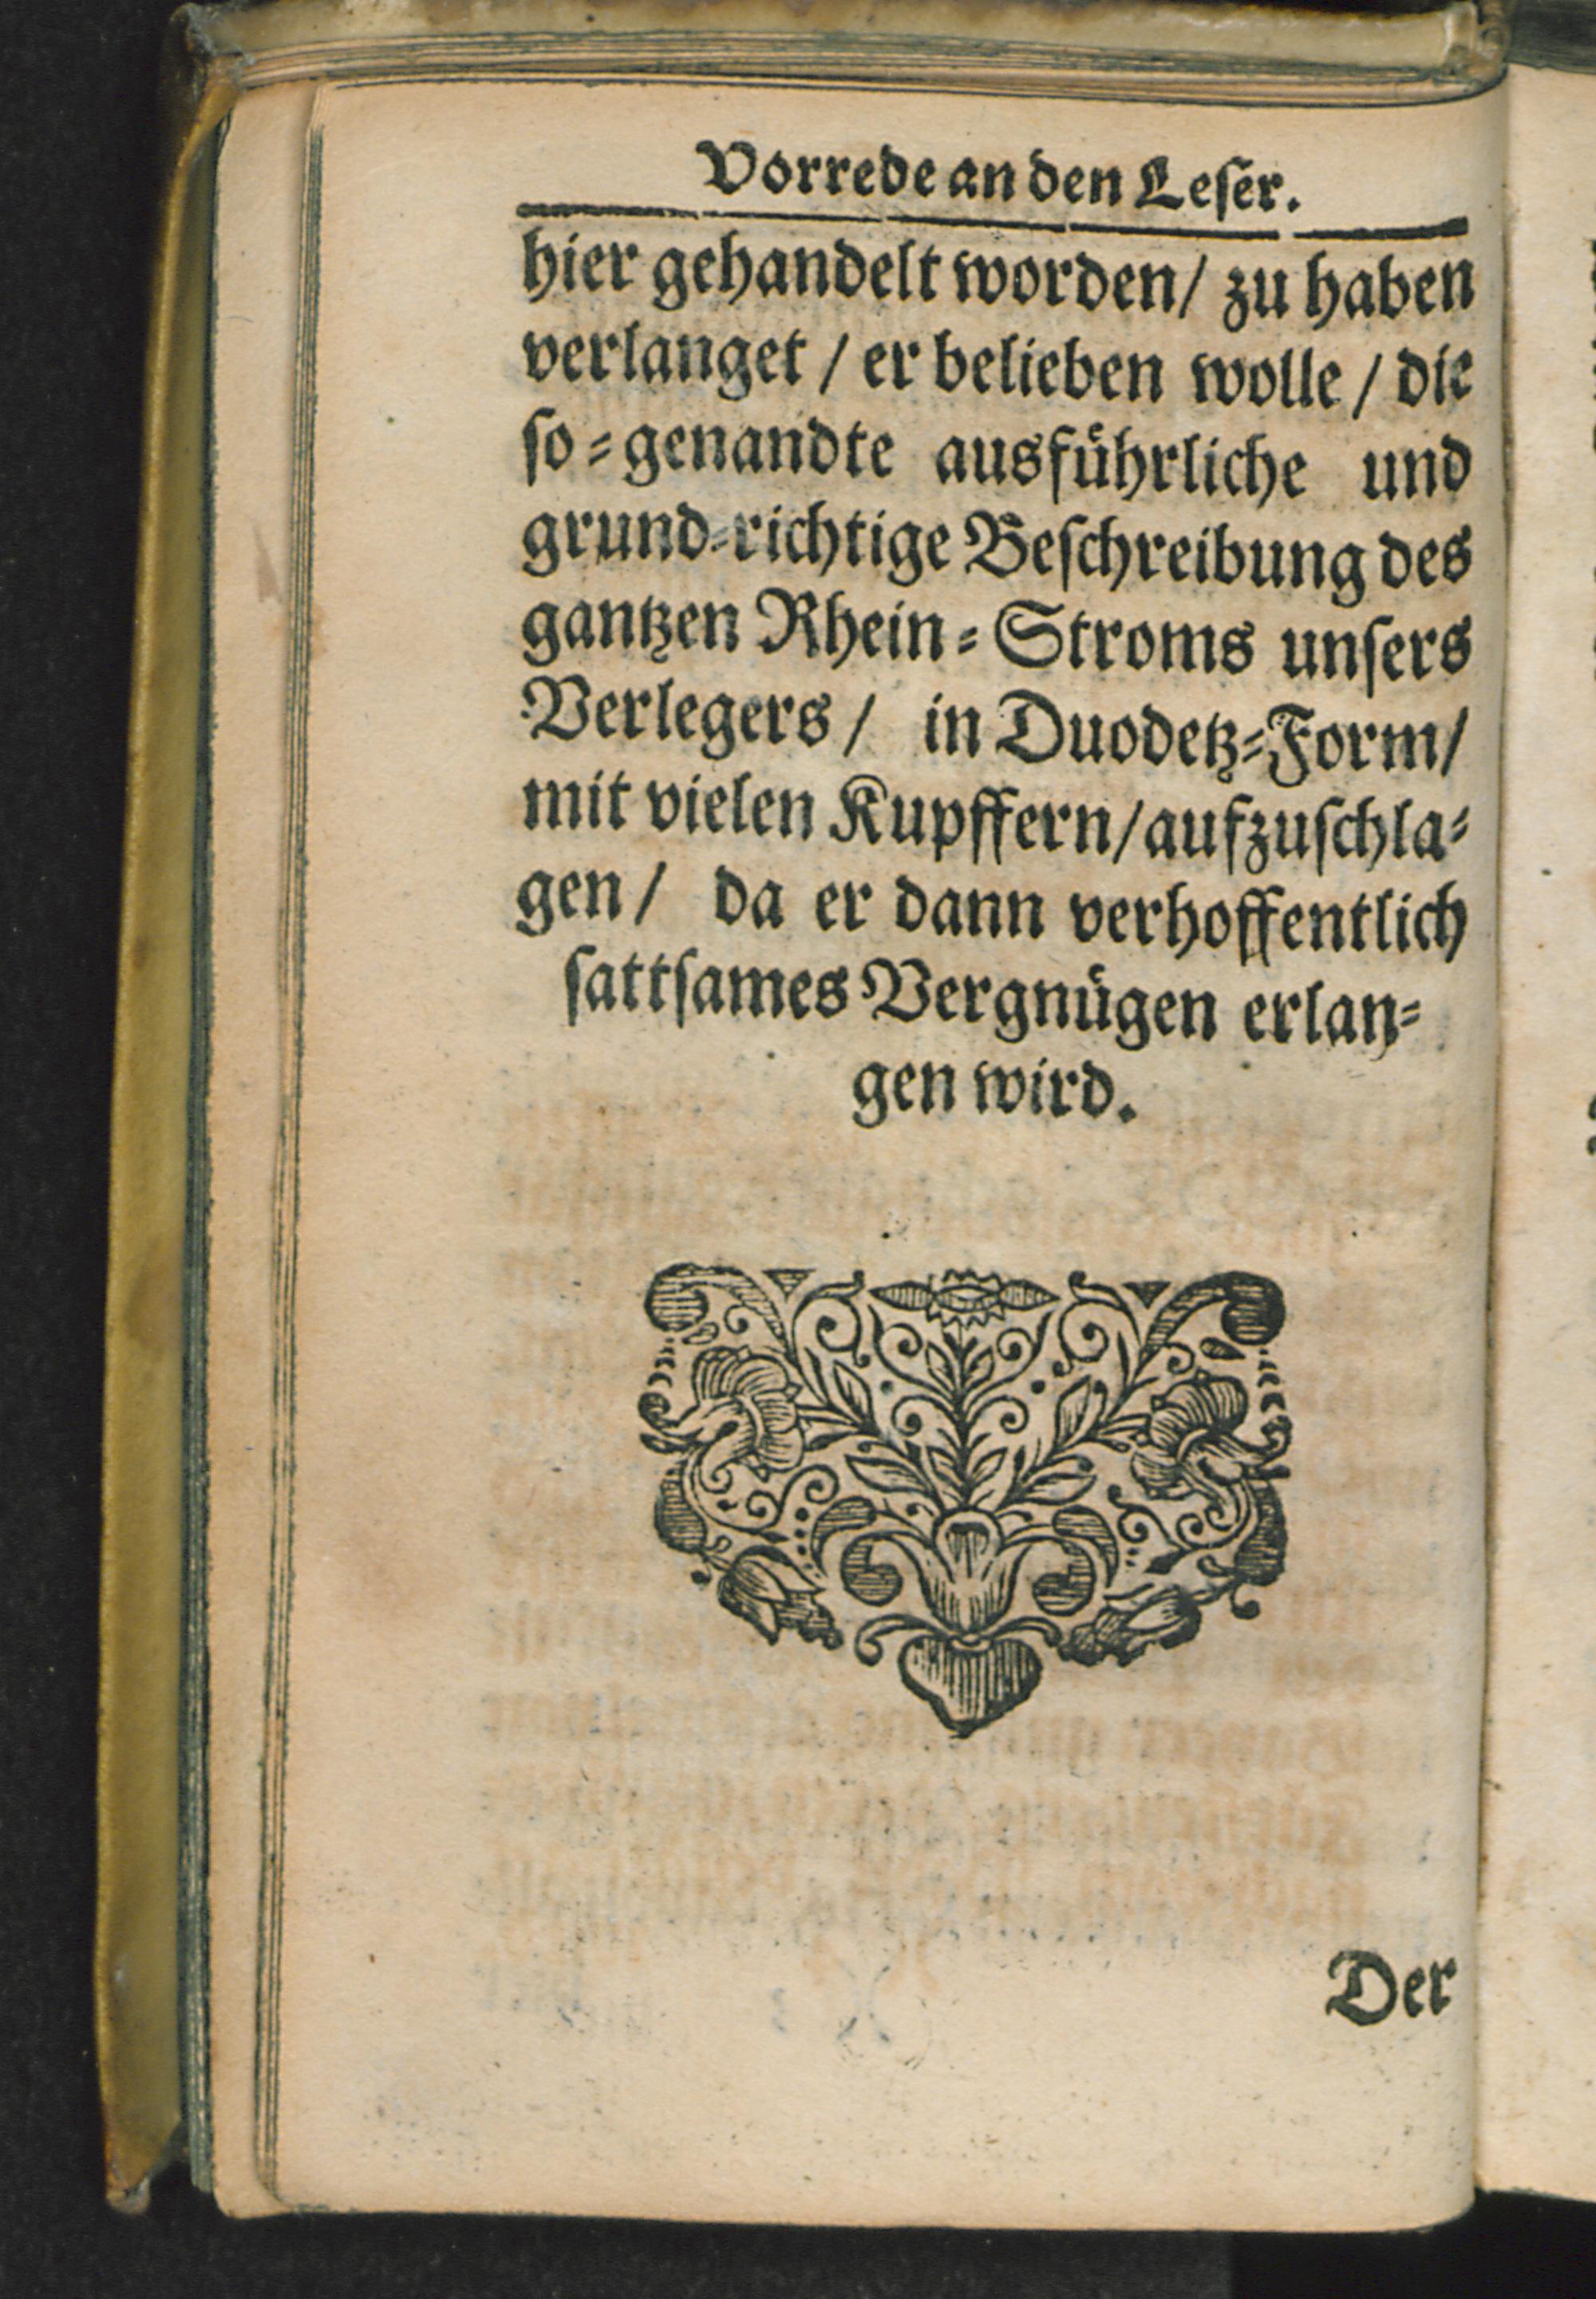 Vorrede an den Leſer.
hier gehandelt worden/ zu haben
verlanget / er belieben wolle / die
ſo⸗genandte ausführliche und
grund⸗richtige Beſchreibung des
gantzen Rhein⸗Stroms unſers
Verlegers / in Duodetz⸗Form/
mit vielen Kupffern/aufzuſchla⸗
gen/ da er dann verhoffentlich
ſattſames Vergnügen erlan⸗
gen wird.
Der